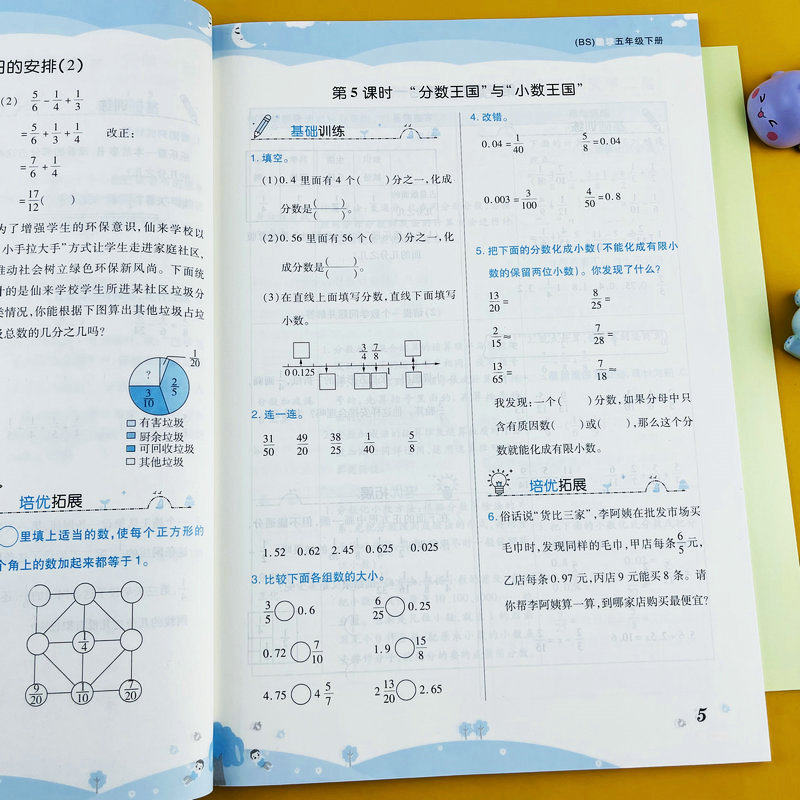 的安排(2)
(2) 5/6-1/4+1/3
=5/6+1/3+1/4 改正:
=7/6+1/4
=17/12( )
为了增强学生的环保意识,仙来学校以
小手拉大手”方式让学生走进家庭社区,
推动社会树立绿色环保新风尚。下面统
的是仙来学校学生所进某社区垃圾分
类情况,你能根据下图算出其他垃圾占垃
圾总数的几分之几吗?
1/20
?
2/5
3/10
有害垃圾
厨余垃圾
可回收垃圾
其他垃圾
培优拓展
里填上适当的数,使每个正方形的
个角上的数加起来都等于1。
1/4
9/20 1/10 7/20
(BS) 数学五年级下册
第5课时 “分数王国”与“小数王国”
基础训练
1. 填空。
(1)0.4里面有4个( )分之一,化成
分数是( )/( )。
(2)0.56里面有56个( )分之一,化
成分数是( )/( )。
(3)在直线上面填写分数,直线下面填写
小数。
3/4 7/8
0 0.125 1
2. 连一连。
31/50 49/20 38/25 1/40 5/8
1.52 0.62 2.45 0.625 0.025
3. 比较下面各组数的大小。
3/5○0.6 6/25○0.25
0.72○7/10 1.9○15/8
4.75○4 5/7 2 13/20○2.65
4. 改错。
0.04=1/40 5/8=0.04
0.003=3/100 4/50=0.8
5. 把下面的分数化成小数(不能化成有限小
数的保留两位小数)。你发现了什么?
13/20= 8/25=
2/15≈ 7/28=
13/65= 7/18≈
我发现:一个( )分数,如果分母中只
含有质因数( )或( ),那么这个分
数就能化成有限小数。
培优拓展
6. 俗话说“货比三家”,李阿姨在批发市场买
毛巾时,发现同样的毛巾,甲店每条6/5元,
乙店每条0.97元,丙店9元能买8条。请
你帮李阿姨算一算,到哪家店购买最便宜?
5